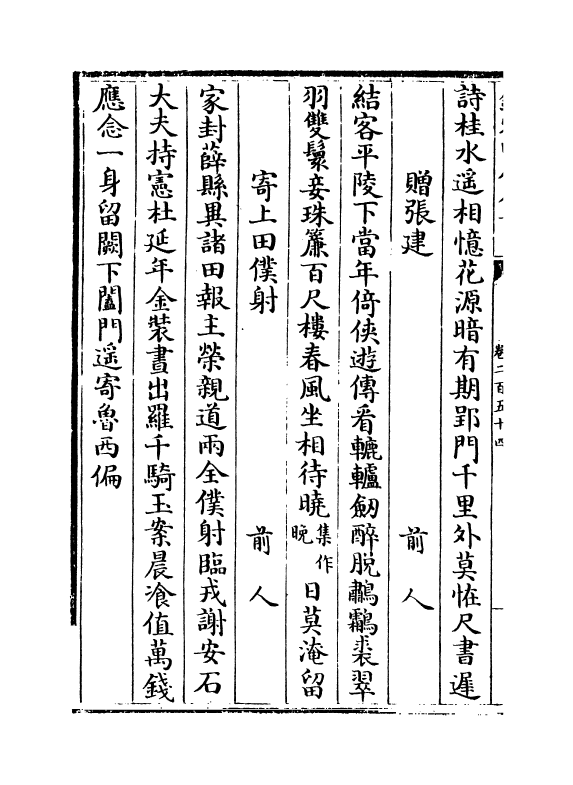 卷二百五十四
詩桂水遥相憶花源暗有期郢門千里外莫怪尺書遲
贈張建　前人
結客平陵下當年倚俠遊傳看轆轤劒醉脱鸘鷞裘翠
羽雙鬟妾珠簾百尺樓春風坐相待曉集作晩日莫淹留
寄上田僕射　前人
家封薛縣異諸田報主榮親道兩全僕射臨戎謝安石
大夫持憲杜延年金裝晝出羅千騎玉案晨飡值萬錢
應念一身留闕下闔門遥寄魯西偏